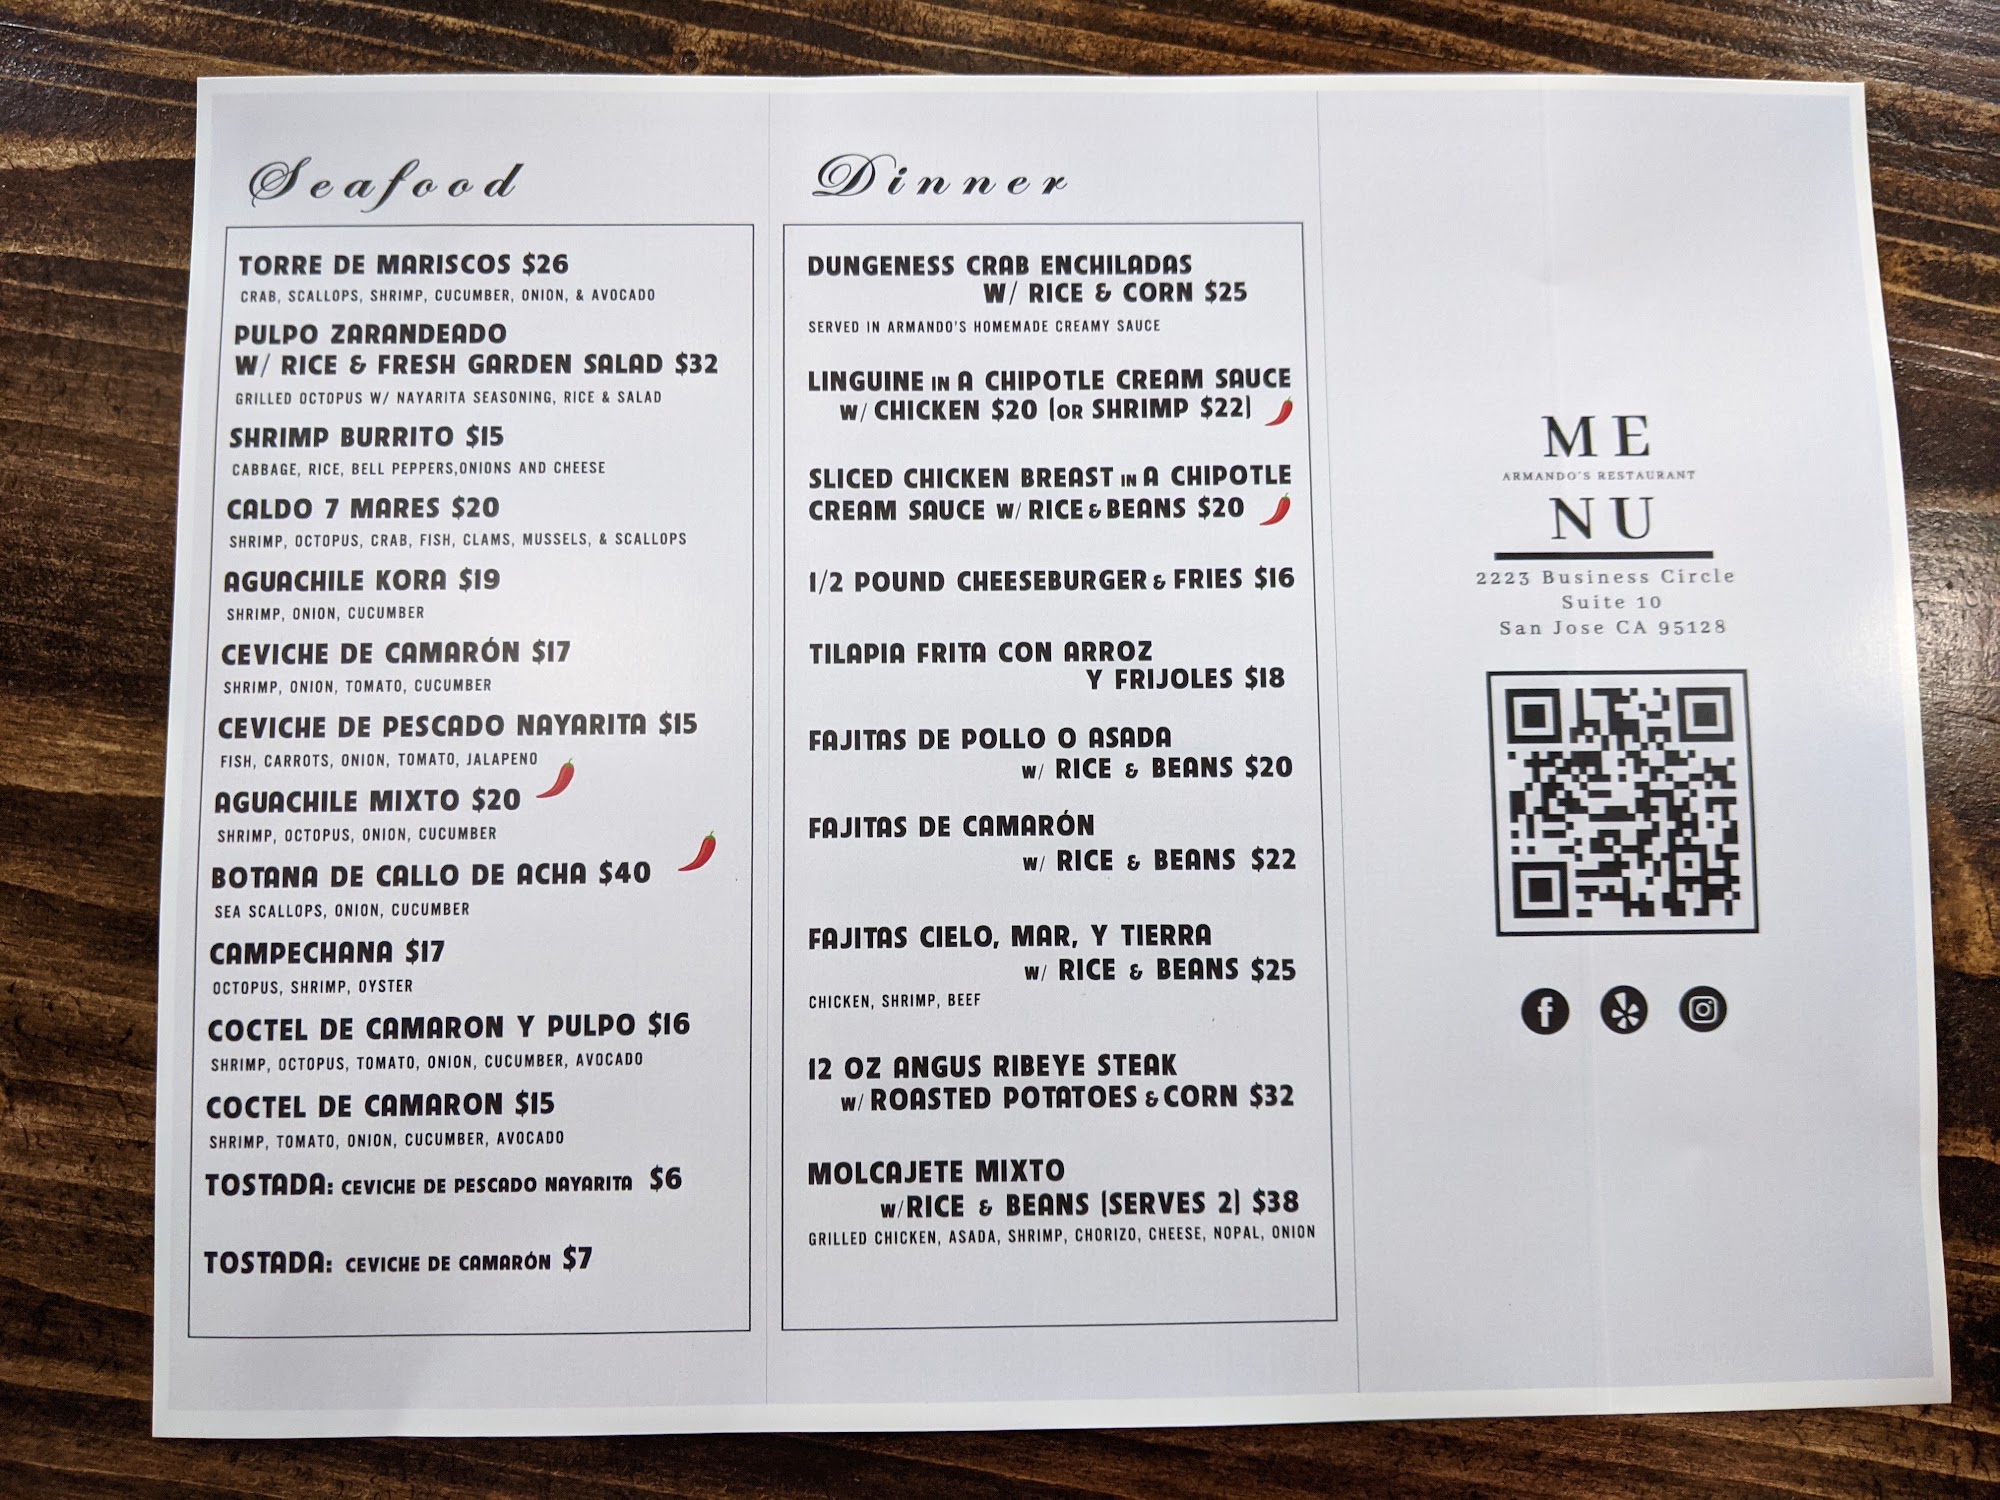 Seafood
TORRE DE MARISCOS $26
CRAB, SCALLOPS, SHRIMP, CUCUMBER, ONION, & AVOCADO
PULPO ZARANDEADO
W/ RICE & FRESH GARDEN SALAD $32
GRILLED OCTOPUS W/ NAYARITA SEASONING, RICE & SALAD
SHRIMP BURRITO $15
CABBAGE, RICE, BELL PEPPERS,ONIONS AND CHEESE
CALDO 7 MARES $20
SHRIMP, OCTOPUS, CRAB, FISH, CLAMS, MUSSELS, & SCALLOPS
AGUACHILE KORA $19
SHRIMP, ONION, CUCUMBER
CEVICHE DE CAMARÓN $17
SHRIMP, ONION, TOMATO, CUCUMBER
CEVICHE DE PESCADO NAYARITA $15
FISH, CARROTS, ONION, TOMATO, JALAPENO
AGUACHILE MIXTO $20
SHRIMP, OCTOPUS, ONION, CUCUMBER
BOTANA DE CALLO DE ACHA $40
SEA SCALLOPS, ONION, CUCUMBER
CAMPECHANA $17
OCTOPUS, SHRIMP, OYSTER
COCTEL DE CAMARON Y PULPO $16
SHRIMP, OCTOPUS, TOMATO, ONION, CUCUMBER, AVOCADO
COCTEL DE CAMARON $15
SHRIMP, TOMATO, ONION, CUCUMBER, AVOCADO
TOSTADA: CEVICHE DE PESCADO NAYARITA $6
TOSTADA: CEVICHE DE CAMARÓN $7
Dinner
DUNGENESS CRAB ENCHILADAS
W/ RICE & CORN $25
SERVED IN ARMANDO'S HOMEMADE CREAMY SAUCE
LINGUINE IN A CHIPOTLE CREAM SAUCE
W/ CHICKEN $20 (OR SHRIMP $22)
SLICED CHICKEN BREAST IN A CHIPOTLE
CREAM SAUCE W/ RICE & BEANS $20
1/2 POUND CHEESEBURGER & FRIES $16
TILAPIA FRITA CON ARROZ
Y FRIJOLES $18
FAJITAS DE POLLO O ASADA
W/ RICE & BEANS $20
FAJITAS DE CAMARÓN
W/ RICE & BEANS $22
FAJITAS CIELO, MAR, Y TIERRA
W/ RICE & BEANS $25
CHICKEN, SHRIMP, BEEF
12 OZ ANGUS RIBEYE STEAK
W/ ROASTED POTATOES & CORN $32
MOLCAJETE MIXTO
W/RICE & BEANS (SERVES 2) $38
GRILLED CHICKEN, ASADA, SHRIMP, CHORIZO, CHEESE, NOPAL, ONION
ME
ARMANDO'S RESTAURANT
NU
2223 Business Circle
Suite 10
San Jose CA 95128